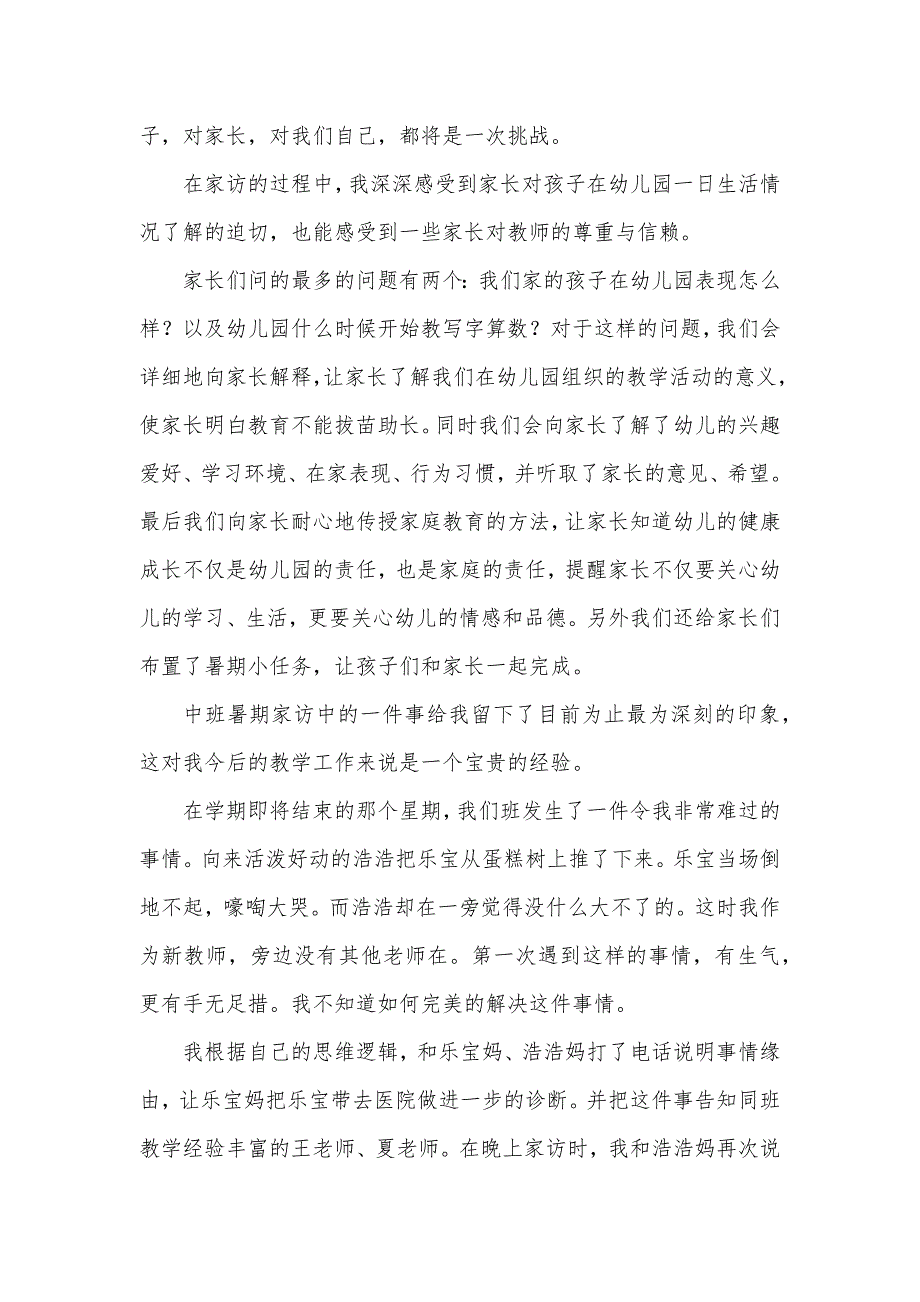 子，对家长，对我们自己，都将是一次挑战。
在家访的过程中，我深深感受到家长对孩子在幼儿园一日生活情
况了解的迫切，也能感受到一些家长对教师的尊重与信赖。
家长们问的最多的问题有两个：我们家的孩子在幼儿园表现怎么
样？以及幼儿园什么时候开始教写字算数？对于这样的问题，我们会
详细地向家长解释，让家长了解我们在幼儿园组织的教学活动的意义，
使家长明白教育不能拔苗助长。同时我们会向家长了解了幼儿的兴趣
爱好、学习环境、在家表现、行为习惯，并听取了家长的意见、希望。
最后我们向家长耐心地传授家庭教育的方法，让家长知道幼儿的健康
成长不仅是幼儿园的责任，也是家庭的责任，提醒家长不仅要关心幼
儿的学习、生活，更要关心幼儿的情感和品德。另外我们还给家长们
布置了暑期小任务，让孩子们和家长一起完成。
中班暑期家访中的一件事给我留下了目前为止最为深刻的印象，
这对我今后的教学工作来说是一个宝贵的经验。
在学期即将结束的那个星期，我们班发生了一件令我非常难过的
事情。向来活泼好动的浩浩把乐宝从蛋糕树上推了下来。乐宝当场倒
地不起，嚎啕大哭。而浩浩却在一旁觉得没什么大不了的。这时我作
为新教师，旁边没有其他老师在。第一次遇到这样的事情，有生气，
更有手无足措。我不知道如何完美的解决这件事情。
我根据自己的思维逻辑，和乐宝妈、浩浩妈打了电话说明事情缘
由，让乐宝妈把乐宝带去医院做进一步的诊断。并把这件事告知同班
教学经验丰富的王老师、夏老师。在晚上家访时，我和浩浩妈再次说